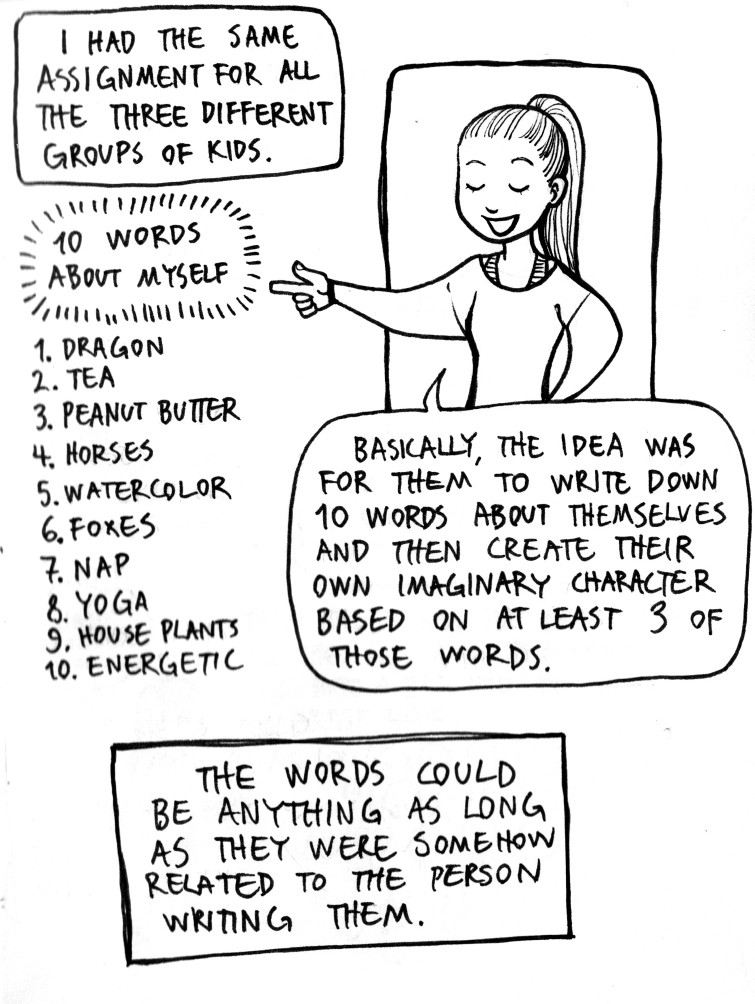 I HAD THE SAME
ASSIGNMENT FOR ALL
THE THREE DIFFERENT
GROUPS OF KIDS.
10 WORDS
ABOUT MYSELF
1. DRAGON
2. TEA
3. PEANUT BUTTER
4. HORSES
5. WATERCOLOR
6. FOXES
7. NAP
8. YOGA
9. HOUSE PLANTS
10. ENERGETIC
BASICALLY, THE IDEA WAS
FOR THEM TO WRITE DOWN
10 WORDS ABOUT THEMSELVES
AND THEN CREATE THEIR
OWN IMAGINARY CHARACTER
BASED ON AT LEAST 3 OF
THOSE WORDS.
THE WORDS COULD
BE ANYTHING AS LONG
AS THEY WERE SOMEHOW
RELATED TO THE PERSON
WRITING THEM.